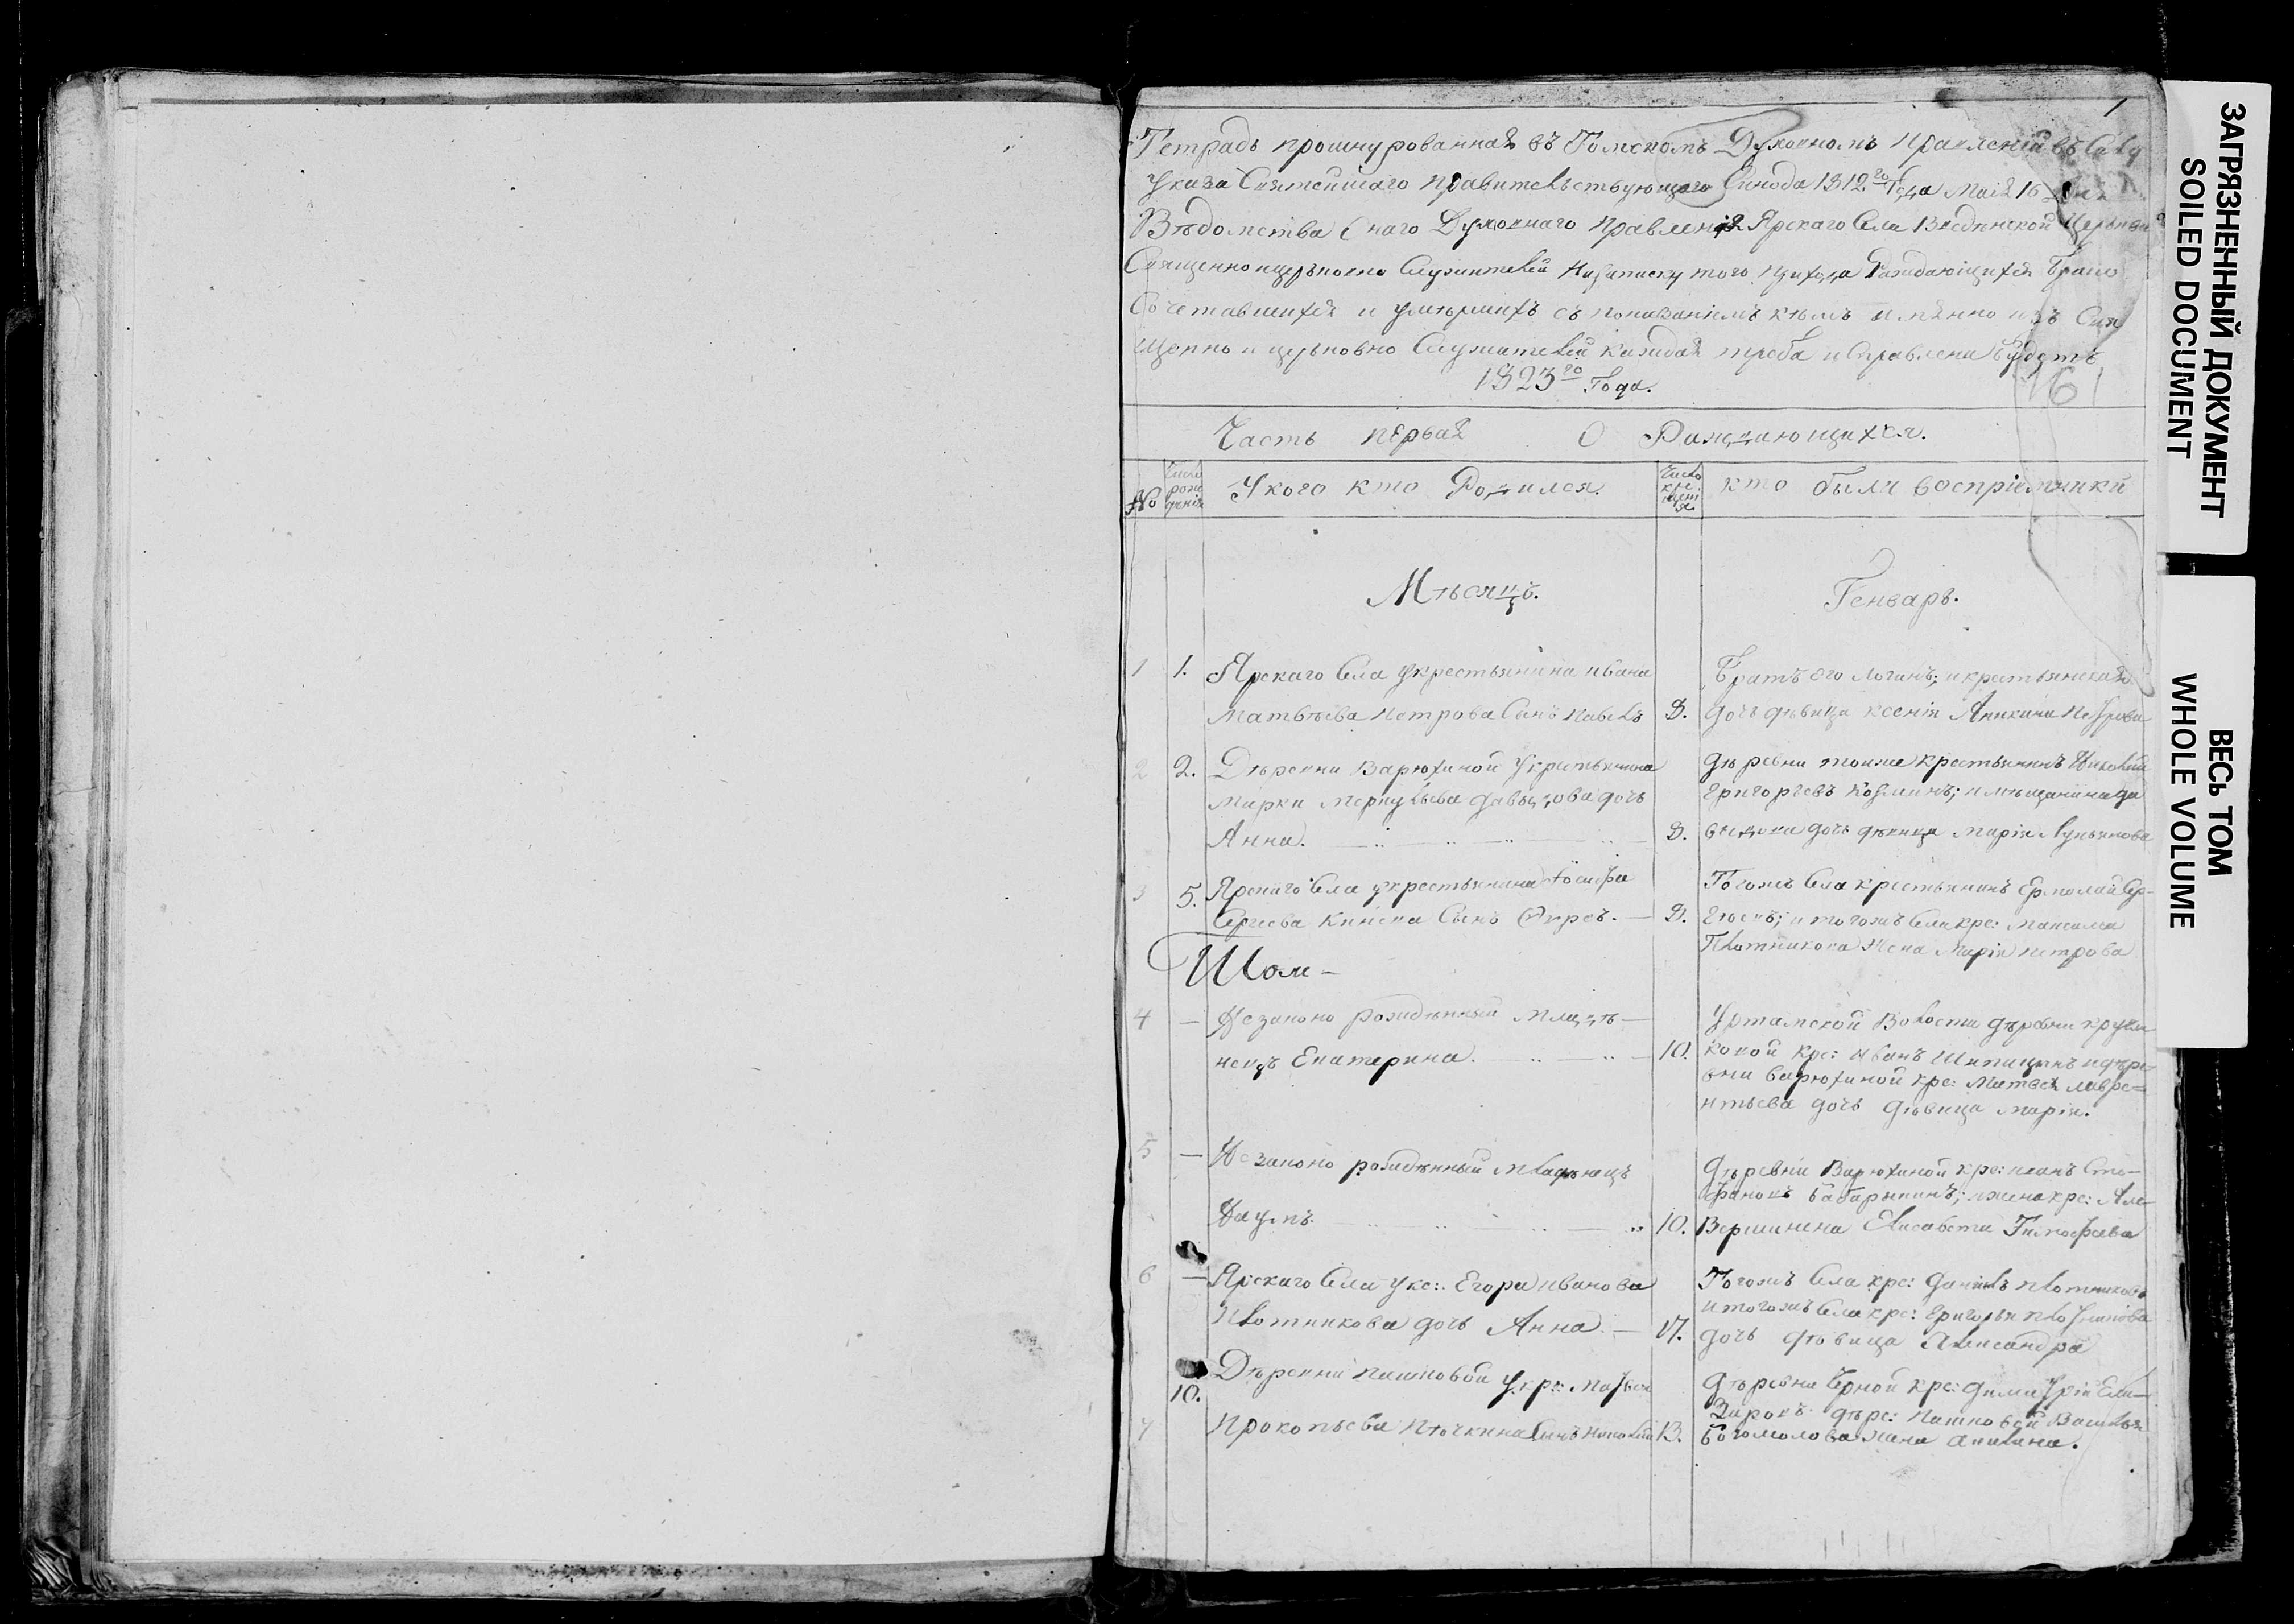 1
Тетрадь прошнурованная въ Томскомъ Духовномъ Правленіи въ Силу
Указа Святейшаго правительствующаго Синода 1812го Года Маія 16 дня
Вѣдомства Онаго Духовнаго Правленія Ярскаго Села Введенской Церкви
Священноцерьковно Служителей Назаписку того прихода Раждающихся Брако
Сочетавшихся и умѣршихъ съ показаніемъ кѣмъ имянно изъ Свя
щенно и церьковно Служителей каждая треба исправлена будетъ
1823го Года.
161
Часть первая О Раждающихся.
№
Число рождѣнія
У кого кто Родился.
Число крещенія
кто были воспріемники
Мѣсяцъ.
Генварь.
1 1. Ярскаго Села укрестьянина ивана
Матвѣева Петрова Сынъ Павелъ 8.
Братъ его Логинъ; и крестьянская
дочь дѣвица ксенія Аникина Петрова
2 2. Дѣревни Варюхиной Укрестьянина
Марки Меркульева давыдова дочь
Анна. 8.
дѣревни тоиже крестьянинъ Николай
Григорьевъ Козминъ; и мѣщанина да
выдова дочь дѣвица Марія Лукьянова
3 5. Ярскаго Села укрестьянина Іосифа
Сергѣева Кинѣва Сынъ 8.
Тогожъ Села крестьянинъ Ермолай Сер-
гѣевъ; и тогожъ Села кре: Максима
Плотникова Жена Марія петрова
Шом-
4 — Незаконо рождѣнный Младѣ-
нецъ Екатерина. 10.
Уртамской Волости дѣревни кругли
ковой кре: иванъ Шипицынъ и дѣре-
вни Варюхиной кре: Матвея лавре=
нтьева дочь дѣвица марія.
5 — Незаконо рождѣнный младѣнецъ
Наумъ. 10.
Дѣревни Варюхиной кре: иванъ Сте-
фановъ бабарыкинъ; и жена кре: Але
Вершинина Елисавета Тимофѣева
6 — Ярскаго Села у кре: Егора иванова
Плотникова дочь Анна — 17.
Тогожъ Села кре: данилъ плотниковъ
и тогожъ Села кре: Григорья плотникова
дочь дѣвица Александра
7 10. Дѣревни пашковой у кре: Матвея
Прокопьева Пточкина Сынъ Николай 13.
Дѣревни Черной кре: димитрій Ели-
заровъ дѣре: Пашковой Василья
Богомолова жена акилина.
ЗАГРЯЗНЕННЫЙ ДОКУМЕНТ
SOILED DOCUMENT
ВЕСЬ ТОМ
WHOLE VOLUME